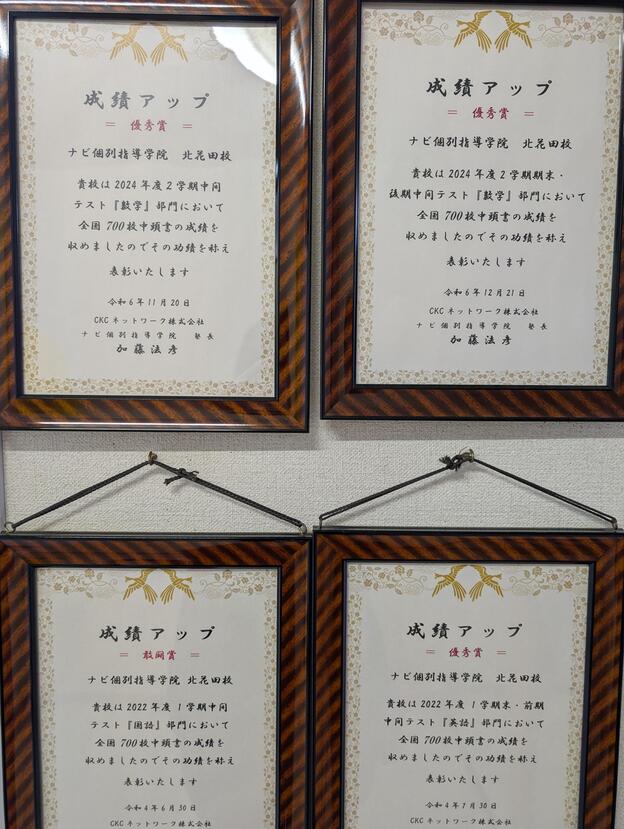 成績アップ
＝ 優秀賞 ＝
ナビ個別指導学院 北花田校
貴校は2024年度2学期中間
テスト『数学』部門において
全国700校中頭書の成績を
収めましたのでその功績を称え
表彰いたします
令和6年11月20日
CKCネットワーク株式会社
ナビ個別指導学院 塾長
加藤法彦
成績アップ
＝ 優秀賞 ＝
ナビ個別指導学院 北花田校
貴校は2024年度2学期期末・
後期中間テスト『数学』部門において
全国700校中頭書の成績を
収めましたのでその功績を称え
表彰いたします
令和6年12月21日
CKCネットワーク株式会社
ナビ個別指導学院 塾長
加藤法彦
成績アップ
＝ 敢闘賞 ＝
ナビ個別指導学院 北花田校
貴校は2022年度1学期中間
テスト『国語』部門において
全国700校中頭書の成績を
収めましたのでその功績を称え
表彰いたします
令和4年6月30日
CKCネットワーク株式会社
成績アップ
＝ 優秀賞 ＝
ナビ個別指導学院 北花田校
貴校は2022年度1学期末・前期
中間テスト『英語』部門において
全国700校中頭書の成績を
収めましたのでその功績を称え
表彰いたします
令和4年7月30日
CKCネットワーク株式会社